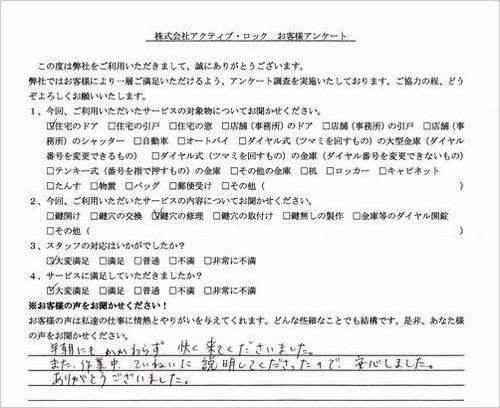 株式会社アクティブ・ロック　お客様アンケート
この度は弊社をご利用いただきまして、誠にありがとうございます。
弊社ではお客様により一層ご満足いただけるよう、アンケート調査を実施いたしております。ご協力の程、どう
ぞよろしくお願いいたします。
1、今回、ご利用いただいたサービスの対象物についてお聞かせください。
☑住宅のドア　□住宅の引戸　□住宅の窓　□店舗（事務所）のドア　□店舗（事務所）の引戸　□店舗（事
務所）のシャッター　□自動車　□オートバイ　□ダイヤル式（ツマミを回すもの）の大型金庫（ダイヤル
番号を変更できるもの）　□ダイヤル式（ツマミを回すもの）の金庫（ダイヤル番号を変更できないもの）
□テンキー式（番号を指で押すもの）の金庫　□その他の金庫　□机　□ロッカー　□キャビネット
□たんす　□物置　□バッグ　□郵便受け　□その他（　）
2、今回、ご利用いただいたサービスの内容についてお聞かせください。
□鍵開け　□鍵穴の交換　☑鍵穴の修理　□鍵穴の取付け　□鍵無しの製作　□金庫等のダイヤル開錠
□その他（　）
3、スタッフの対応はいかがでしたか？
☑大変満足　□満足　□普通　□不満　□非常に不満
4、サービスに満足していただきましたか？
☑大変満足　□満足　□普通　□不満　□非常に不満
※お客様の声をお聞かせください！
お客様の声は私達の仕事に情熱とやりがいを与えてくれます。どんな些細なことでも結構です。是非、あなた様
の声をお聞かせください。
早朝にもかかわらず 快く来てくださいました。
また、作業中、ていねいに 説明してくださったので、安心しました。
ありがとうございました。